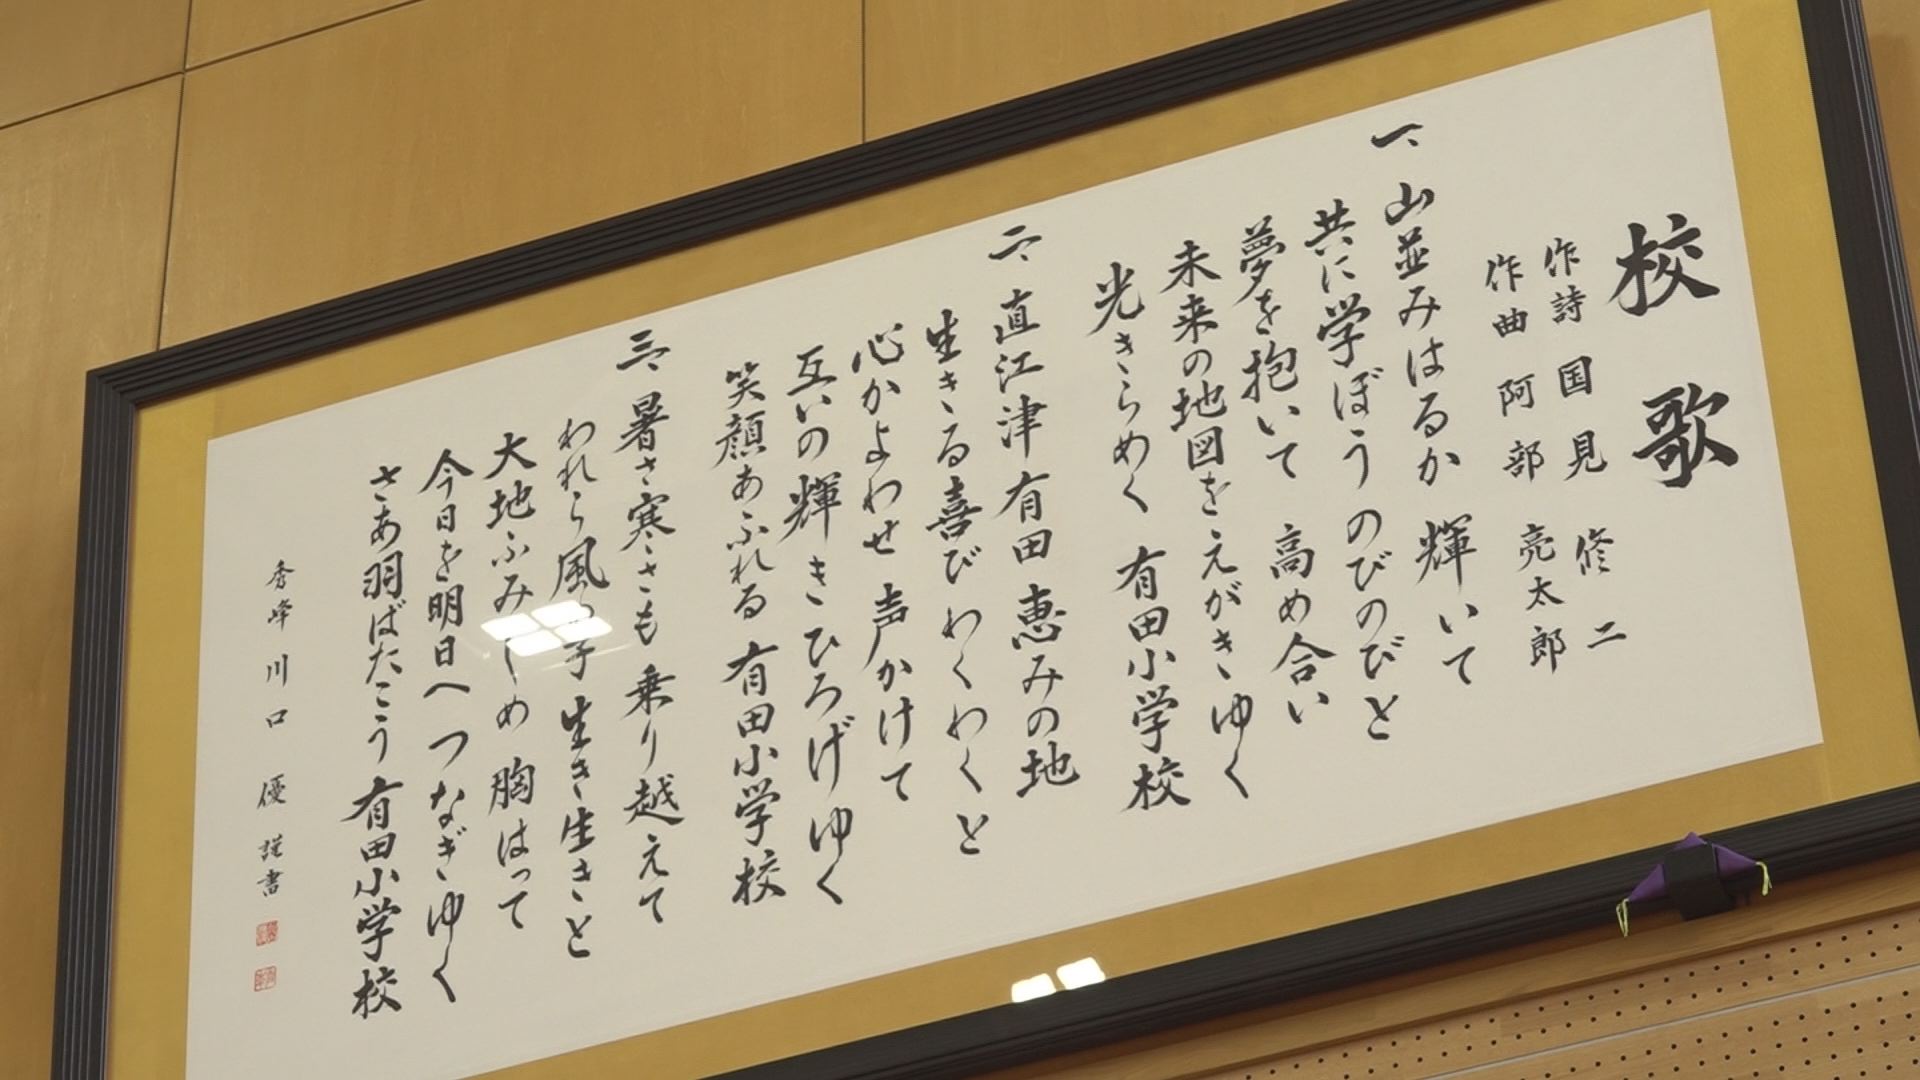 校歌
作詩 国見 修二
作曲 阿部 亮太郎
一、山並みはるか 輝いて
共に学ぼう のびのびと
夢を抱いて 高め合い
未来の地図を えがきゆく
光きらめく 有田小学校
二、直江津 有田 恵みの地
生きる喜び わくわくと
心かよわせ 声かけて
互いの輝き ひろげゆく
笑顔あふれる 有田小学校
三、暑さ寒さも 乗り越えて
われら風の子 生き生きと
大地ふみしめ 胸はって
今日を明日へ つなぎゆく
さあ羽ばたこう 有田小学校
秀峰 川口 優 謹書